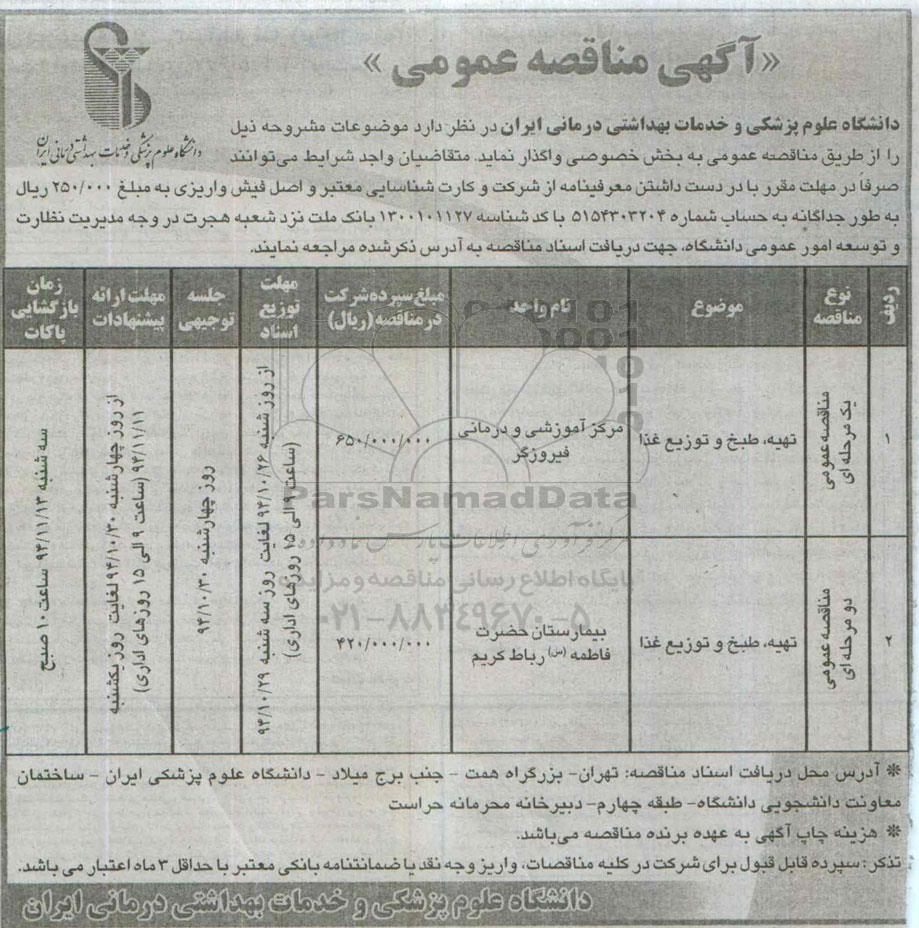 «آگهی مناقصه عمومی»
دانشگاه علوم پزشکی و خدمات بهداشتی درمانی ایران
دانشگاه علوم پزشکی و خدمات بهداشتی درمانی ایران در نظر دارد موضوعات مشروحه ذیل
را از طریق مناقصه عمومی به بخش خصوصی واگذار نماید. متقاضیان واجد شرایط می‌توانند
صرفاً در مهلت مقرر با در دست داشتن معرفینامه از شرکت و کارت شناسایی معتبر و اصل فیش واریزی به مبلغ ۲۵۰/۰۰۰ ریال
به طور جداگانه به حساب شماره ۵۱۵۴۳۰۳۲۰۴ با کد شناسه ۱۳۰۰۱۰۱۱۲۷ بانک ملت نزد شعبه هجرت در وجه مدیریت نظارت
و توسعه امور عمومی دانشگاه، جهت دریافت اسناد مناقصه به آدرس ذکر شده مراجعه نمایند.
ردیف
نوع
مناقصه
موضوع
نام واحد
مبلغ سپرده شرکت
در مناقصه (ریال)
مهلت
توزیع
اسناد
جلسه
توجیهی
مهلت ارائه
پیشنهادات
زمان
بازگشایی
پاکات
۱
مناقصه عمومی
یک مرحله ای
تهیه، طبخ و توزیع غذا
مرکز آموزشی و درمانی
فیروزگر
۶۵۰/۰۰۰/۰۰۰
از روز شنبه ۹۴/۱۰/۲۶ لغایت روز سه شنبه ۹۴/۱۰/۲۹
(ساعت ۹ الی ۱۵ روزهای اداری)
روز چهارشنبه ۹۴/۱۰/۳۰
از روز چهارشنبه ۹۴/۱۰/۳۰ لغایت روز یکشنبه
۹۴/۱۱/۱۱ (ساعت ۹ الی ۱۵ روزهای اداری)
سه شنبه ۹۴/۱۱/۱۳ ساعت ۱۰ صبح
۲
مناقصه عمومی
دو مرحله ای
تهیه، طبخ و توزیع غذا
بیمارستان حضرت
فاطمه (س) رباط کریم
۴۲۰/۰۰۰/۰۰۰
ParsNamadData
پایگاه اطلاع رسانی مناقصه و مزایده
۰۲۱-۸۸۳۴۹۶۷۰-۵
* آدرس محل دریافت اسناد مناقصه: تهران- بزرگراه همت - جنب برج میلاد - دانشگاه علوم پزشکی ایران - ساختمان
معاونت دانشجویی دانشگاه- طبقه چهارم- دبیرخانه محرمانه حراست
* هزینه چاپ آگهی به عهده برنده مناقصه می‌باشد.
تذکر: سپرده قابل قبول برای شرکت در کلیه مناقصات، واریز وجه نقد یا ضمانتنامه بانکی معتبر با حداقل ۳ ماه اعتبار می باشد.
دانشگاه علوم پزشکی و خدمات بهداشتی درمانی ایران